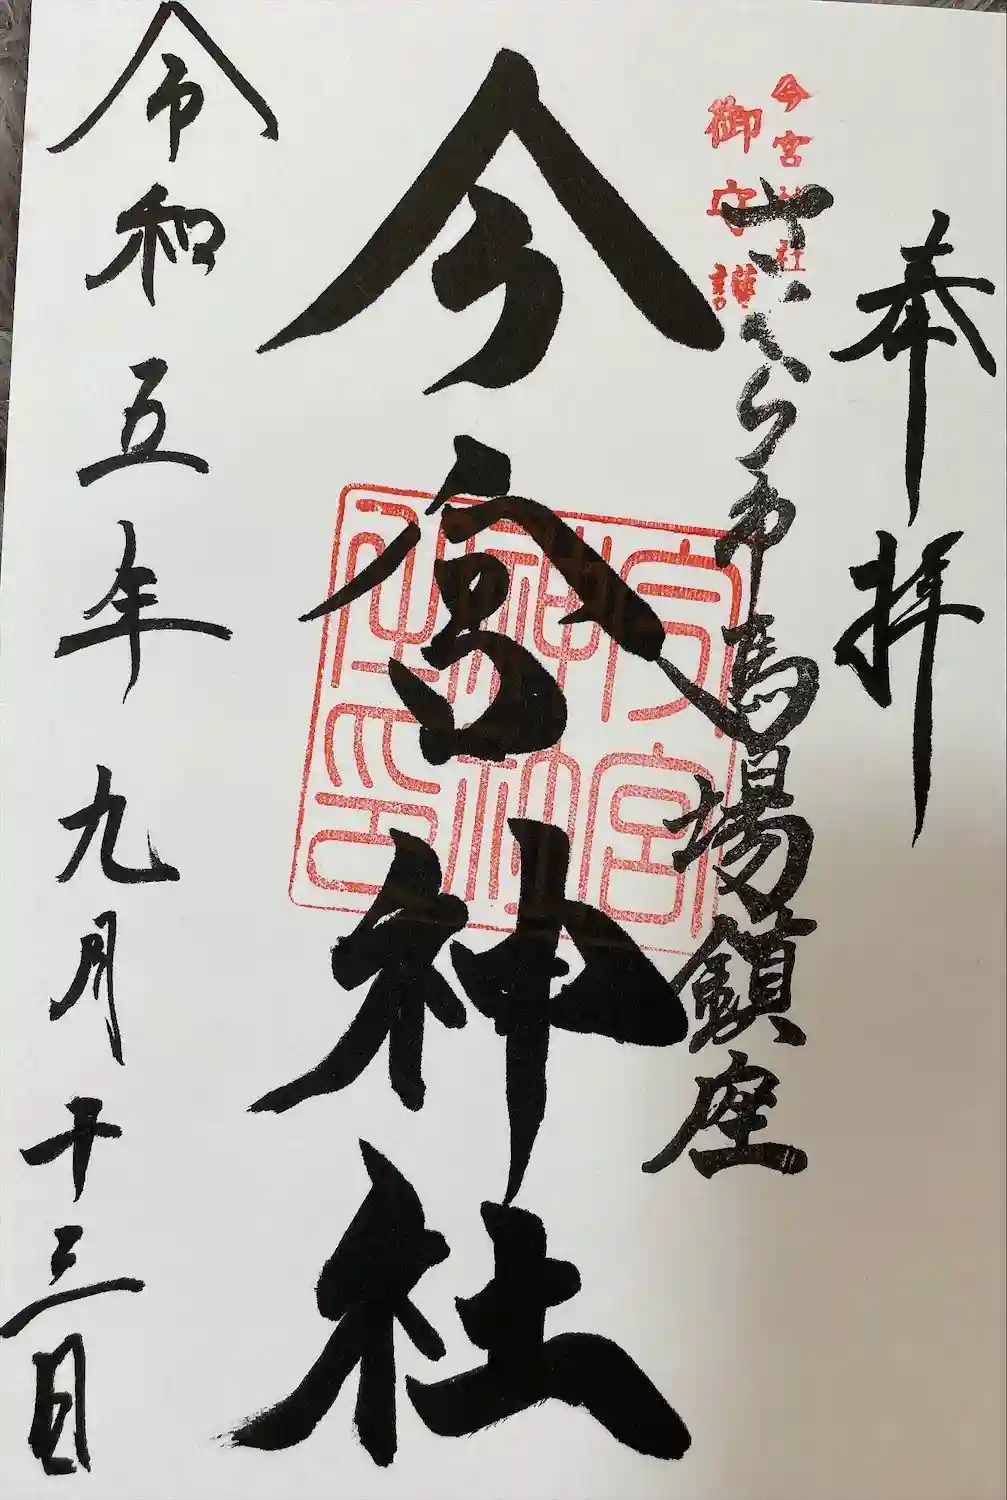 奉拝
今宮神社
御守護
さくら市馬場鎮座
今宮神社
令和五年九月十三日